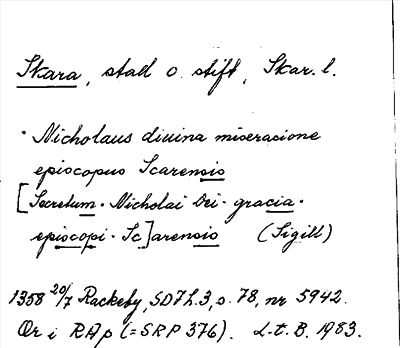 Skara, stad o. stift, Skar. l.
· Nicholaus diuina miseracione
episcopus Scarensis
[Secretum · Nicholai Dei · gracia ·
episcopi · Sc]arensis (Sigill)
1358 20/7 Rackeby, SD7h.3, s. 78, nr 5942.
Or i RAp (=SRP 376). L.t.B. 1983.